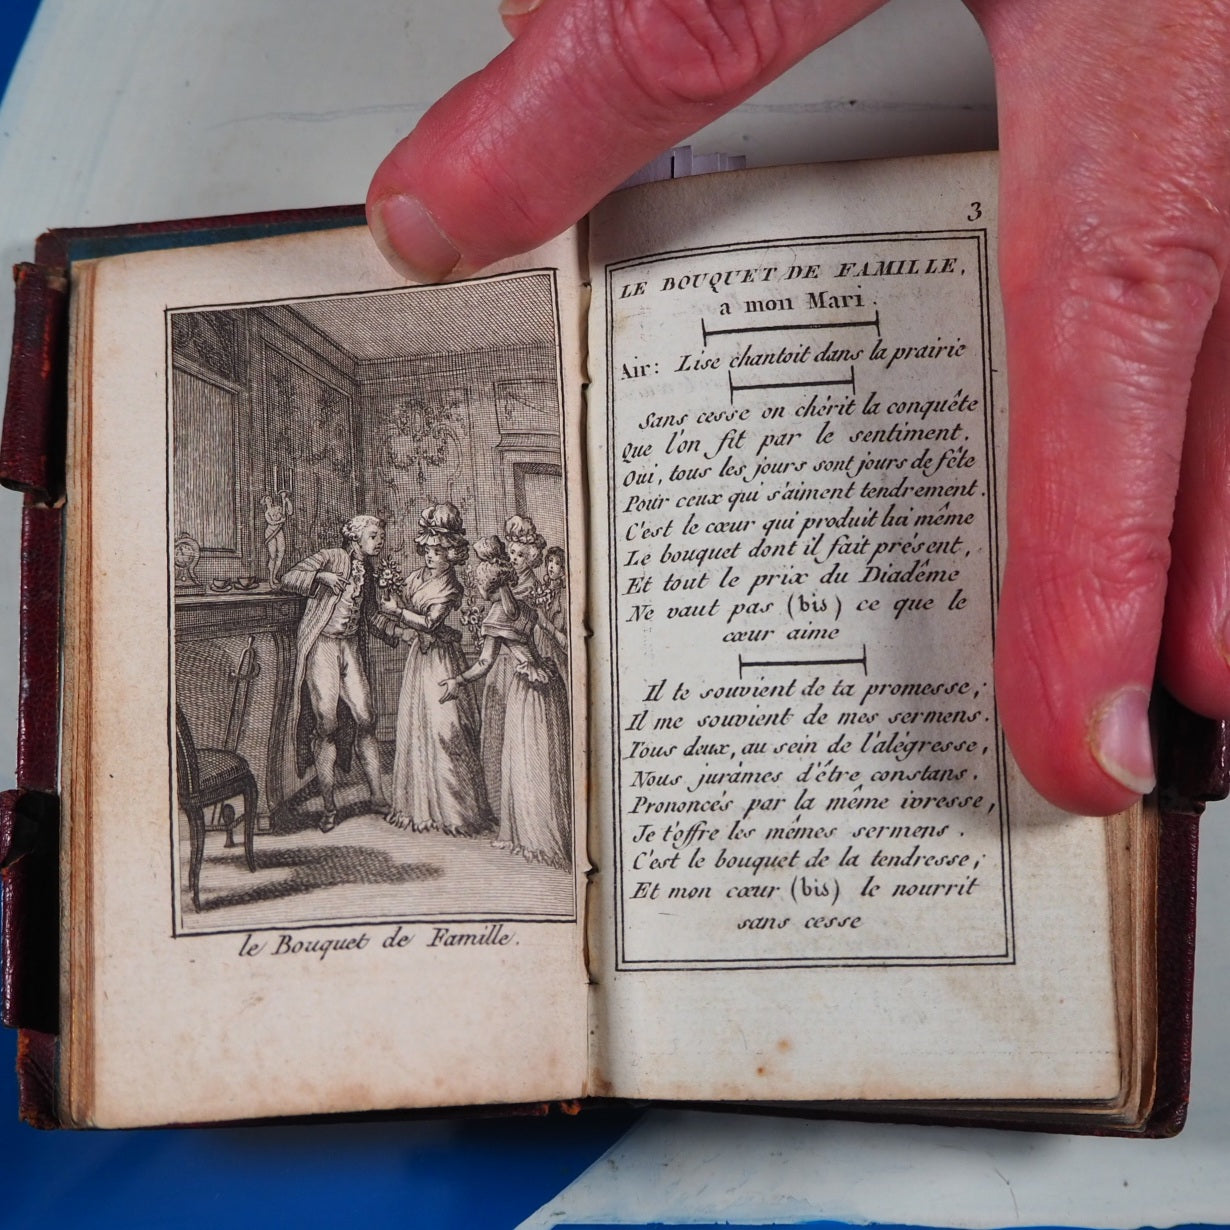 le Bouquet de Famille.
3
LE BOUQUET DE FAMILLE,
a mon Mari.
Air: Lise chantoit dans la prairie
Sans cesse on chérit la conquête
Que l'on fit par le sentiment.
Oui, tous les jours sont jours de fête
Pour ceux qui s'aiment tendrement.
C'est le cœur qui produit lui même
Le bouquet dont il fait présent,
Et tout le prix du Diadême
Ne vaut pas (bis) ce que le
cœur aime
Il te souvient de ta promesse;
Il me souvient de mes sermens.
Tous deux, au sein de l'alégresse,
Nous jurâmes d'être constans.
Prononcés par la même ivresse,
Je t'offre les mêmes sermens.
C'est le bouquet de la tendresse;
Et mon cœur (bis) le nourrit
sans cesse